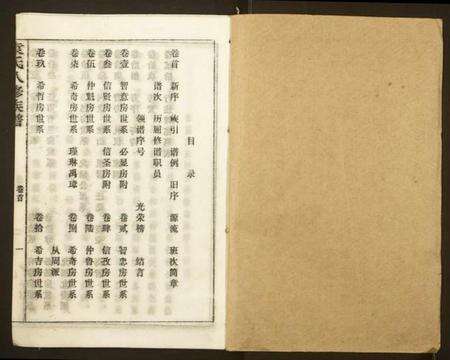 目录
卷首 新序 族引 谱例 旧序 源流 班次简章
谱次 历届修谱职员
领谱序号 光荣榜 结言
卷壹 智意房世系 必显房附 卷贰 智志房世系
卷叁 信贤房世系 信圣房附 卷肆 信孜房世系
卷伍 仲魁房世系 卷陆 仲鲁房世系
卷柒 希奇房世系 瑾琳禹璋 卷捌 希奇房世系
从周派
卷玖 希哲房世系 卷拾 希吉房世系
袁氏八修族谱
卷首
一